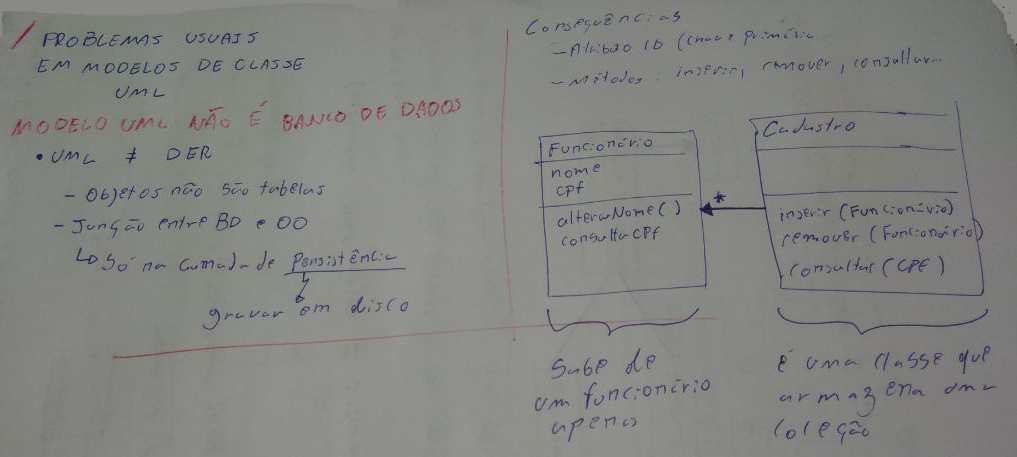 PROBLEMAS USUAIS
EM MODELOS DE CLASSE
UML
MODELO UML NÃO É BANCO DE DADOS
• UML ≠ DER
- Objetos não são tabelas
- Junção entre BD e OO
↳ Só na camada de Persistência
gravar em disco
Consequências
- Atributo ID (chave primária
- Métodos: inserir, remover, consultar...
Funcionário
nome
cpf
alterarNome( )
consultaCPF
*
Cadastro
inserir (Funcionário)
remover (Funcionário)
consultar (CPF)
Sabe de
um funcionário
apenas
É uma classe que
armazena uma
coleção